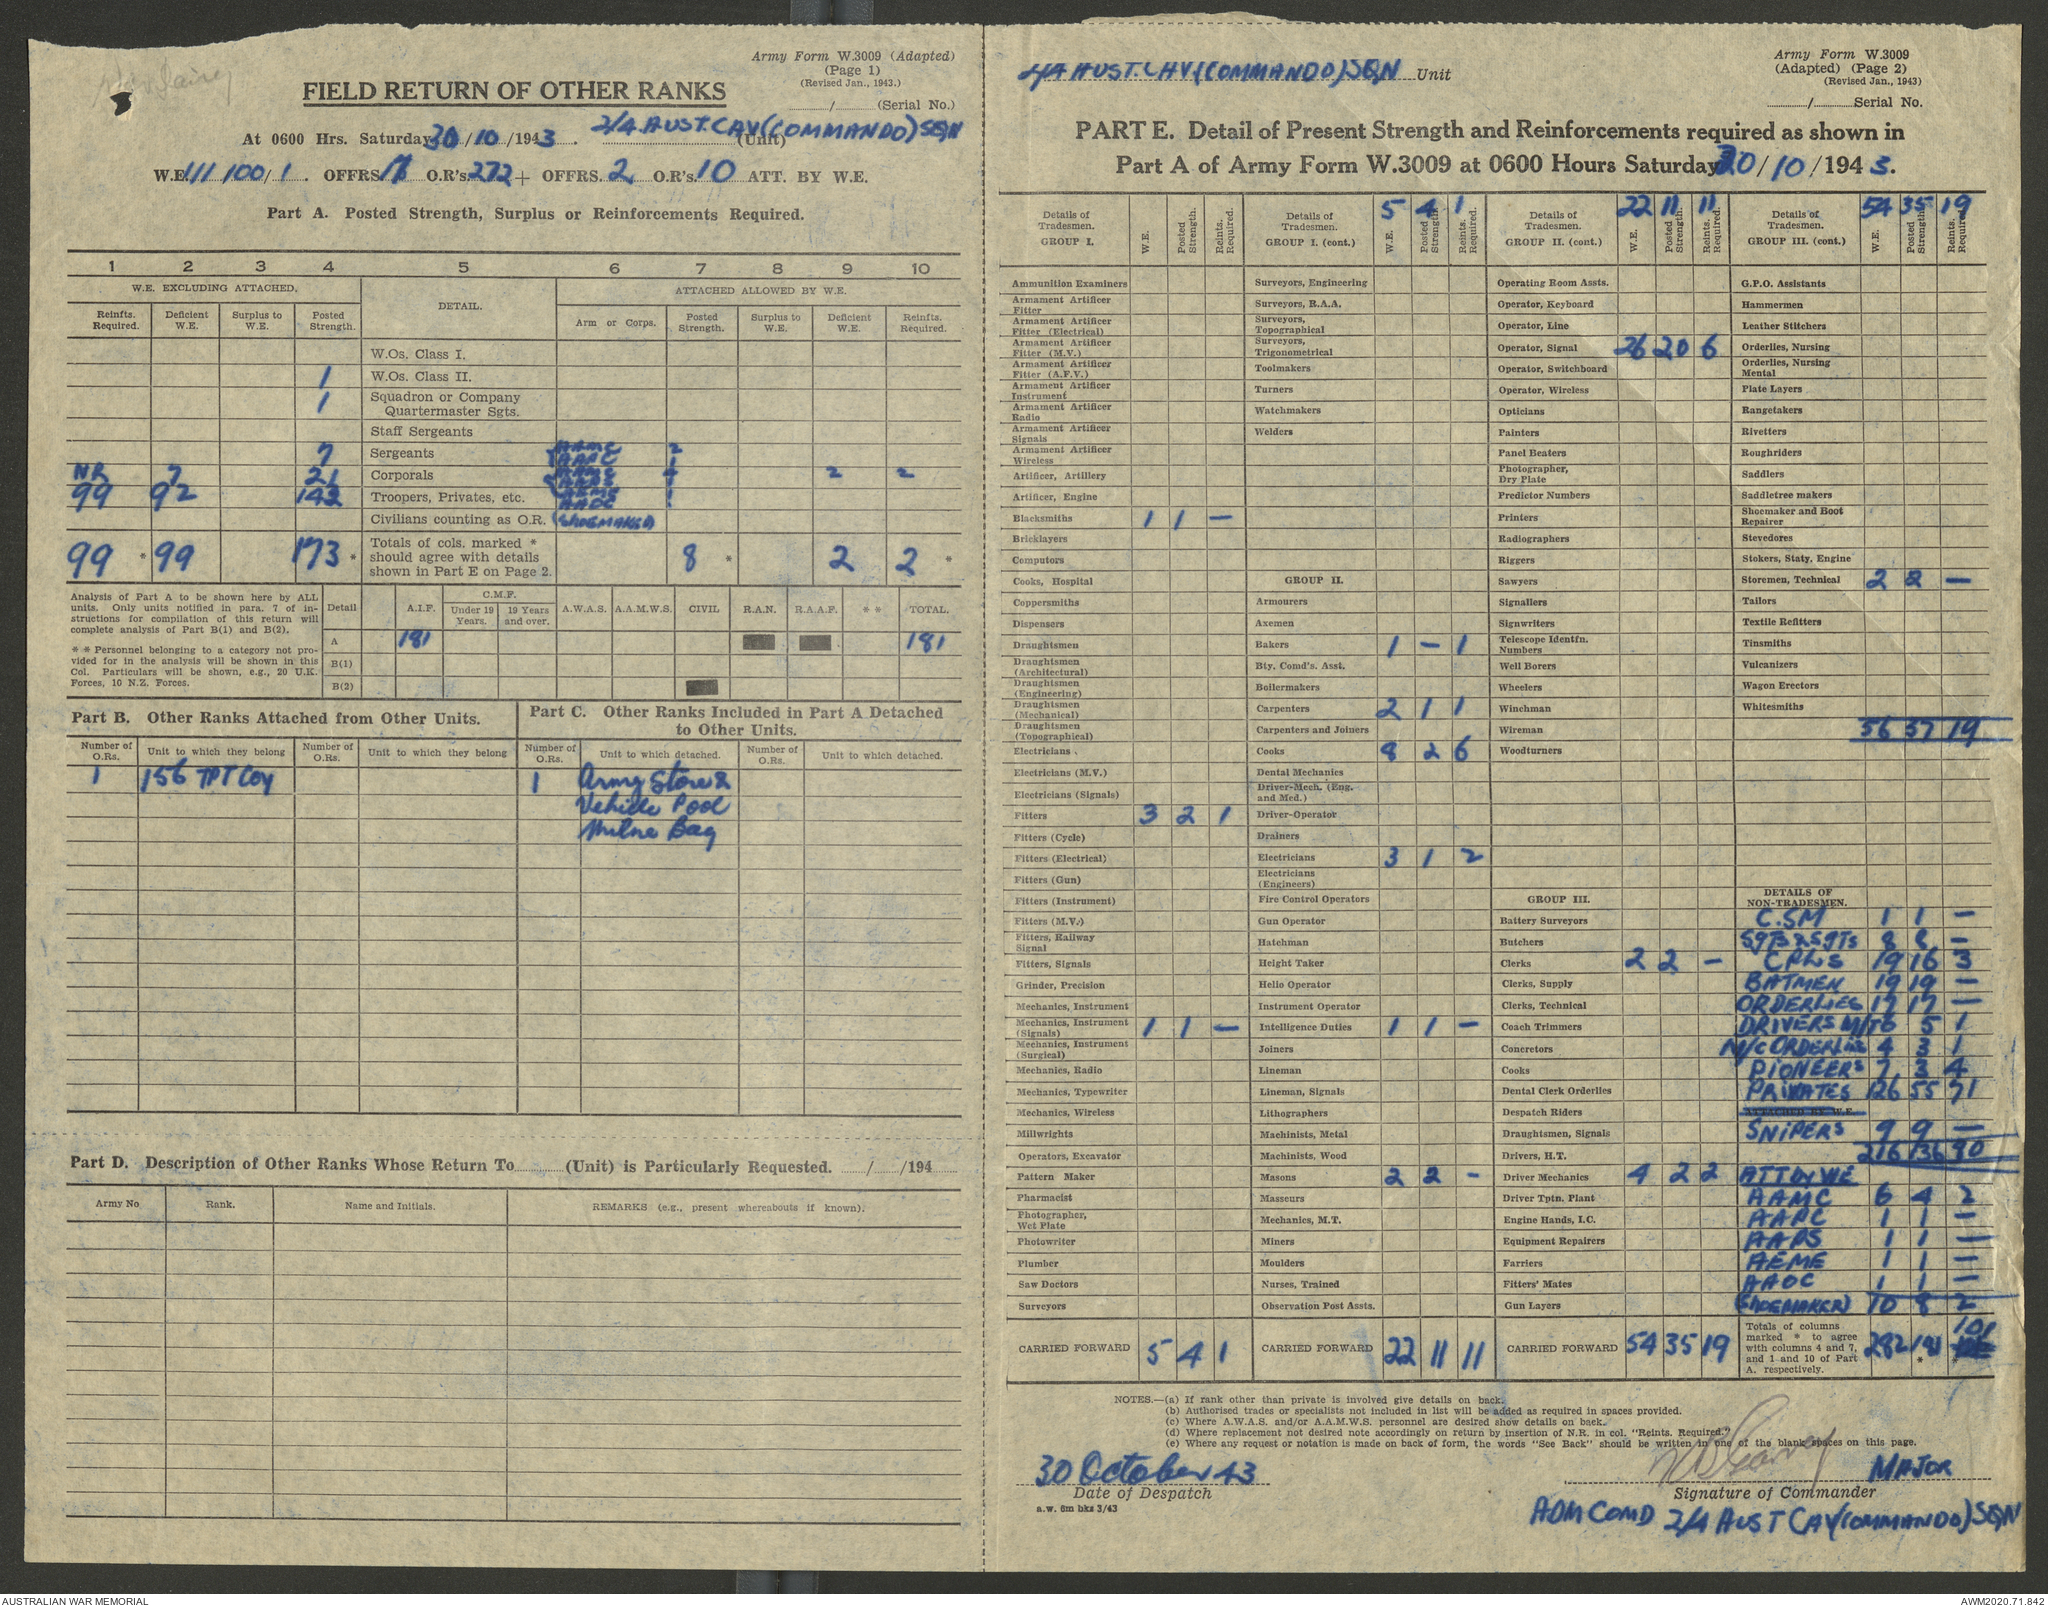 Army Form W.3009 (Adapted)
(Page 1)
(Revised Jan., 1943.)
FIELD RETURN OF OTHER RANKS
/ (Serial No.)
At 0600 Hrs. Saturday 30/10/1943. 2/4 AUST. CAV (COMMANDO) SQN (Unit)
W.E. 111/100/1. OFFRS. 17 O.R's. 272 + OFFRS. 2. O.R's. 10 ATT. BY W.E.
Part A. Posted Strength, Surplus or Reinforcements Required.
1 2 3 4 5 6 7 8 9 10
W.E. EXCLUDING ATTACHED. DETAIL. ATTACHED ALLOWED BY W.E.
Reinfts. Required. Deficient W.E. Surplus to W.E. Posted Strength. Arm or Corps. Posted Strength. Surplus to W.E. Deficient W.E. Reinfts. Required.
W.Os. Class I.
1 W.Os. Class II.
1 Squadron or Company Quartermaster Sgts.
Staff Sergeants
7 Sergeants AAMC 2
AAPC 1
NR 7 21 Corporals AAMC 4 2 2
99 92 142 Troopers, Privates, etc. AEME 1
AAOC 1
Civilians counting as O.R. (SHOEMAKER)
99 * 99 173 * Totals of cols. marked * should agree with details shown in Part E on Page 2. 8 * 2 2 *
Analysis of Part A to be shown here by ALL
units. Only units notified in para. 7 of in-
structions for compilation of this return will
complete analysis of Part B(1) and B(2).
* * Personnel belonging to a category not pro-
vided for in the analysis will be shown in this
Col. Particulars will be shown, e.g., 20 U.K.
Forces, 10 N.Z. Forces.
Detail A.I.F. C.M.F. Under 19 Years. 19 Years and over. A.W.A.S. A.A.M.W.S. CIVIL R.A.N. R.A.A.F. * * TOTAL.
A 181 181
B(1)
B(2)
Part B. Other Ranks Attached from Other Units.
Number of O.Rs. Unit to which they belong Number of O.Rs. Unit to which they belong
1 156 TPT Coy
Part C. Other Ranks Included in Part A Detached
to Other Units.
Number of O.Rs. Unit to which detached. Number of O.Rs. Unit to which detached.
1 Army Store &
Vehicle Pool
Milne Bay
Part D. Description of Other Ranks Whose Return To (Unit) is Particularly Requested. / /194
Army No Rank. Name and Initials. REMARKS (e.g., present whereabouts if known).
2/4 AUST. CAV (COMMANDO) SQN Unit
Army Form W.3009
(Adapted) (Page 2)
(Revised Jan., 1943)
/ Serial No.
PART E. Detail of Present Strength and Reinforcements required as shown in
Part A of Army Form W.3009 at 0600 Hours Saturday 30/10/1943.
Details of Tradesmen. GROUP I. W.E. Posted Strength. Reints. Required.
Ammunition Examiners
Armament Artificer Fitter
Armament Artificer Fitter (Electrical)
Armament Artificer Fitter (M.V.)
Armament Artificer Fitter (A.F.V.)
Armament Artificer Instrument
Armament Artificer Radio
Armament Artificer Signals
Armament Artificer Wireless
Artificer, Artillery
Artificer, Engine
Blacksmiths 1 1 —
Bricklayers
Computors
Cooks, Hospital
Coppersmiths
Dispensers
Draughtsmen
Draughtsmen (Architectural)
Draughtsmen (Engineering)
Draughtsmen (Mechanical)
Draughtsmen (Topographical)
Electricians
Electricians (M.V.)
Electricians (Signals)
Fitters 3 2 1
Fitters (Cycle)
Fitters (Electrical)
Fitters (Gun)
Fitters (Instrument)
Fitters (M.V.)
Fitters, Railway Signal
Fitters, Signals
Grinder, Precision
Mechanics, Instrument
Mechanics, Instrument (Signals) 1 1 —
Mechanics, Instrument (Surgical)
Mechanics, Radio
Mechanics, Typewriter
Mechanics, Wireless
Millwrights
Operators, Excavator
Pattern Maker
Pharmacist
Photographer, Wet Plate
Photowriter
Plumber
Saw Doctors
Surveyors
CARRIED FORWARD 5 4 1
Details of Tradesmen. GROUP I. (cont.) W.E. Posted Strength. Reints. Required. 5 4 1
Surveyors, Engineering
Surveyors, R.A.A.
Surveyors, Topographical
Surveyors, Trigonometrical
Toolmakers
Turners
Watchmakers
Welders
GROUP II.
Armourers
Axemen
Bakers 1 — 1
Bty. Comd's. Asst.
Boilermakers
Carpenters 2 1 1
Carpenters and Joiners
Cooks 8 2 6
Dental Mechanics
Driver-Mech. (Eng. and Med.)
Driver-Operator
Drainers
Electricians 3 1 2
Electricians (Engineers)
Fire Control Operators
Gun Operator
Hatchman
Height Taker
Hello Operator
Instrument Operator
Intelligence Duties 1 1 —
Joiners
Lineman
Lineman, Signals
Lithographers
Machinists, Metal
Machinists, Wood
Masons 2 2 -
Masseurs
Mechanics, M.T.
Miners
Moulders
Nurses, Trained
Observation Post Assts.
CARRIED FORWARD 22 11 11
Details of Tradesmen. GROUP II. (cont.) W.E. Posted Strength. Reints. Required. 22 11 11
Operating Room Assts.
Operator, Keyboard
Operator, Line
Operator, Signal 26 20 6
Operator, Switchboard
Operator, Wireless
Opticians
Painters
Panel Beaters
Photographer, Dry Plate
Predictor Numbers
Printers
Radiographers
Riggers
Sawyers
Signallers
Signwriters
Telescope Identfn. Numbers
Well Borers
Wheelers
Winchman
Wireman
Woodturners
GROUP III.
Battery Surveyors
Butchers
Clerks 2 2 —
Clerks, Supply
Clerks, Technical
Coach Trimmers
Concretors
Cooks
Dental Clerk Orderlies
Despatch Riders
Draughtsmen, Signals
Drivers, H.T.
Driver Mechanics 4 2 2
Driver Tptn. Plant
Engine Hands, I.C.
Equipment Repairers
Farriers
Fitters' Mates
Gun Layers
CARRIED FORWARD 54 35 19
Details of Tradesmen. GROUP III. (cont.) W.E. Posted Strength. Reints. Required. 54 35 19
G.P.O. Assistants
Hammermen
Leather Stitchers
Orderlies, Nursing
Orderlies, Nursing Mental
Plate Layers
Rangetakers
Rivetters
Roughriders
Saddlers
Saddletree makers
Shoemaker and Boot Repairer
Stevedores
Stokers, Staty. Engine
Storemen, Technical 2 2 —
Tailors
Textile Refitters
Tinsmiths
Vulcanizers
Wagon Erectors
Whitesmiths
56 37 19
DETAILS OF NON-TRADESMEN.
C.SM 1 1 —
SgTs & SgTs 8 8 —
CPLS 19 16 3
BATMEN 19 19 —
ORDERLIES 17 17 —
DRIVERS M/T 6 5 1
M/C ORDERLIES 4 3 1
PIONEERS 7 3 4
PRIVATES 126 55 71
ATTACHED BY W.E.
SNIPERS 9 9 —
216 136 80
ATT by WE
AAMC 6 4 2
AAPC 1 1 —
AAPS 1 1 —
AEME 1 1 —
AAOC 1 1 —
(SHOEMAKER) 10 8 2
Totals of columns marked * to agree with columns 4 and 7, and 1 and 10 of Part A. respectively. 282 181 * 101 *
NOTES.—(a) If rank other than private is involved give details on back.
(b) Authorised trades or specialists not included in list will be added as required in spaces provided.
(c) Where A.W.A.S. and/or A.A.M.W.S. personnel are desired show details on back.
(d) Where replacement not desired note accordingly on return by insertion of N.R. in col. "Reints. Required."
(e) Where any request or notation is made on back of form, the words "See Back" should be written in one of the blank spaces on this page.
30 October 43
Date of Despatch
a.w. 6m bks 3/43
MAJOR
Signature of Commander
ADM COMD 2/4 AUST CAV (COMMANDO) SQN
AUSTRALIAN WAR MEMORIAL
AWM2020.71.842